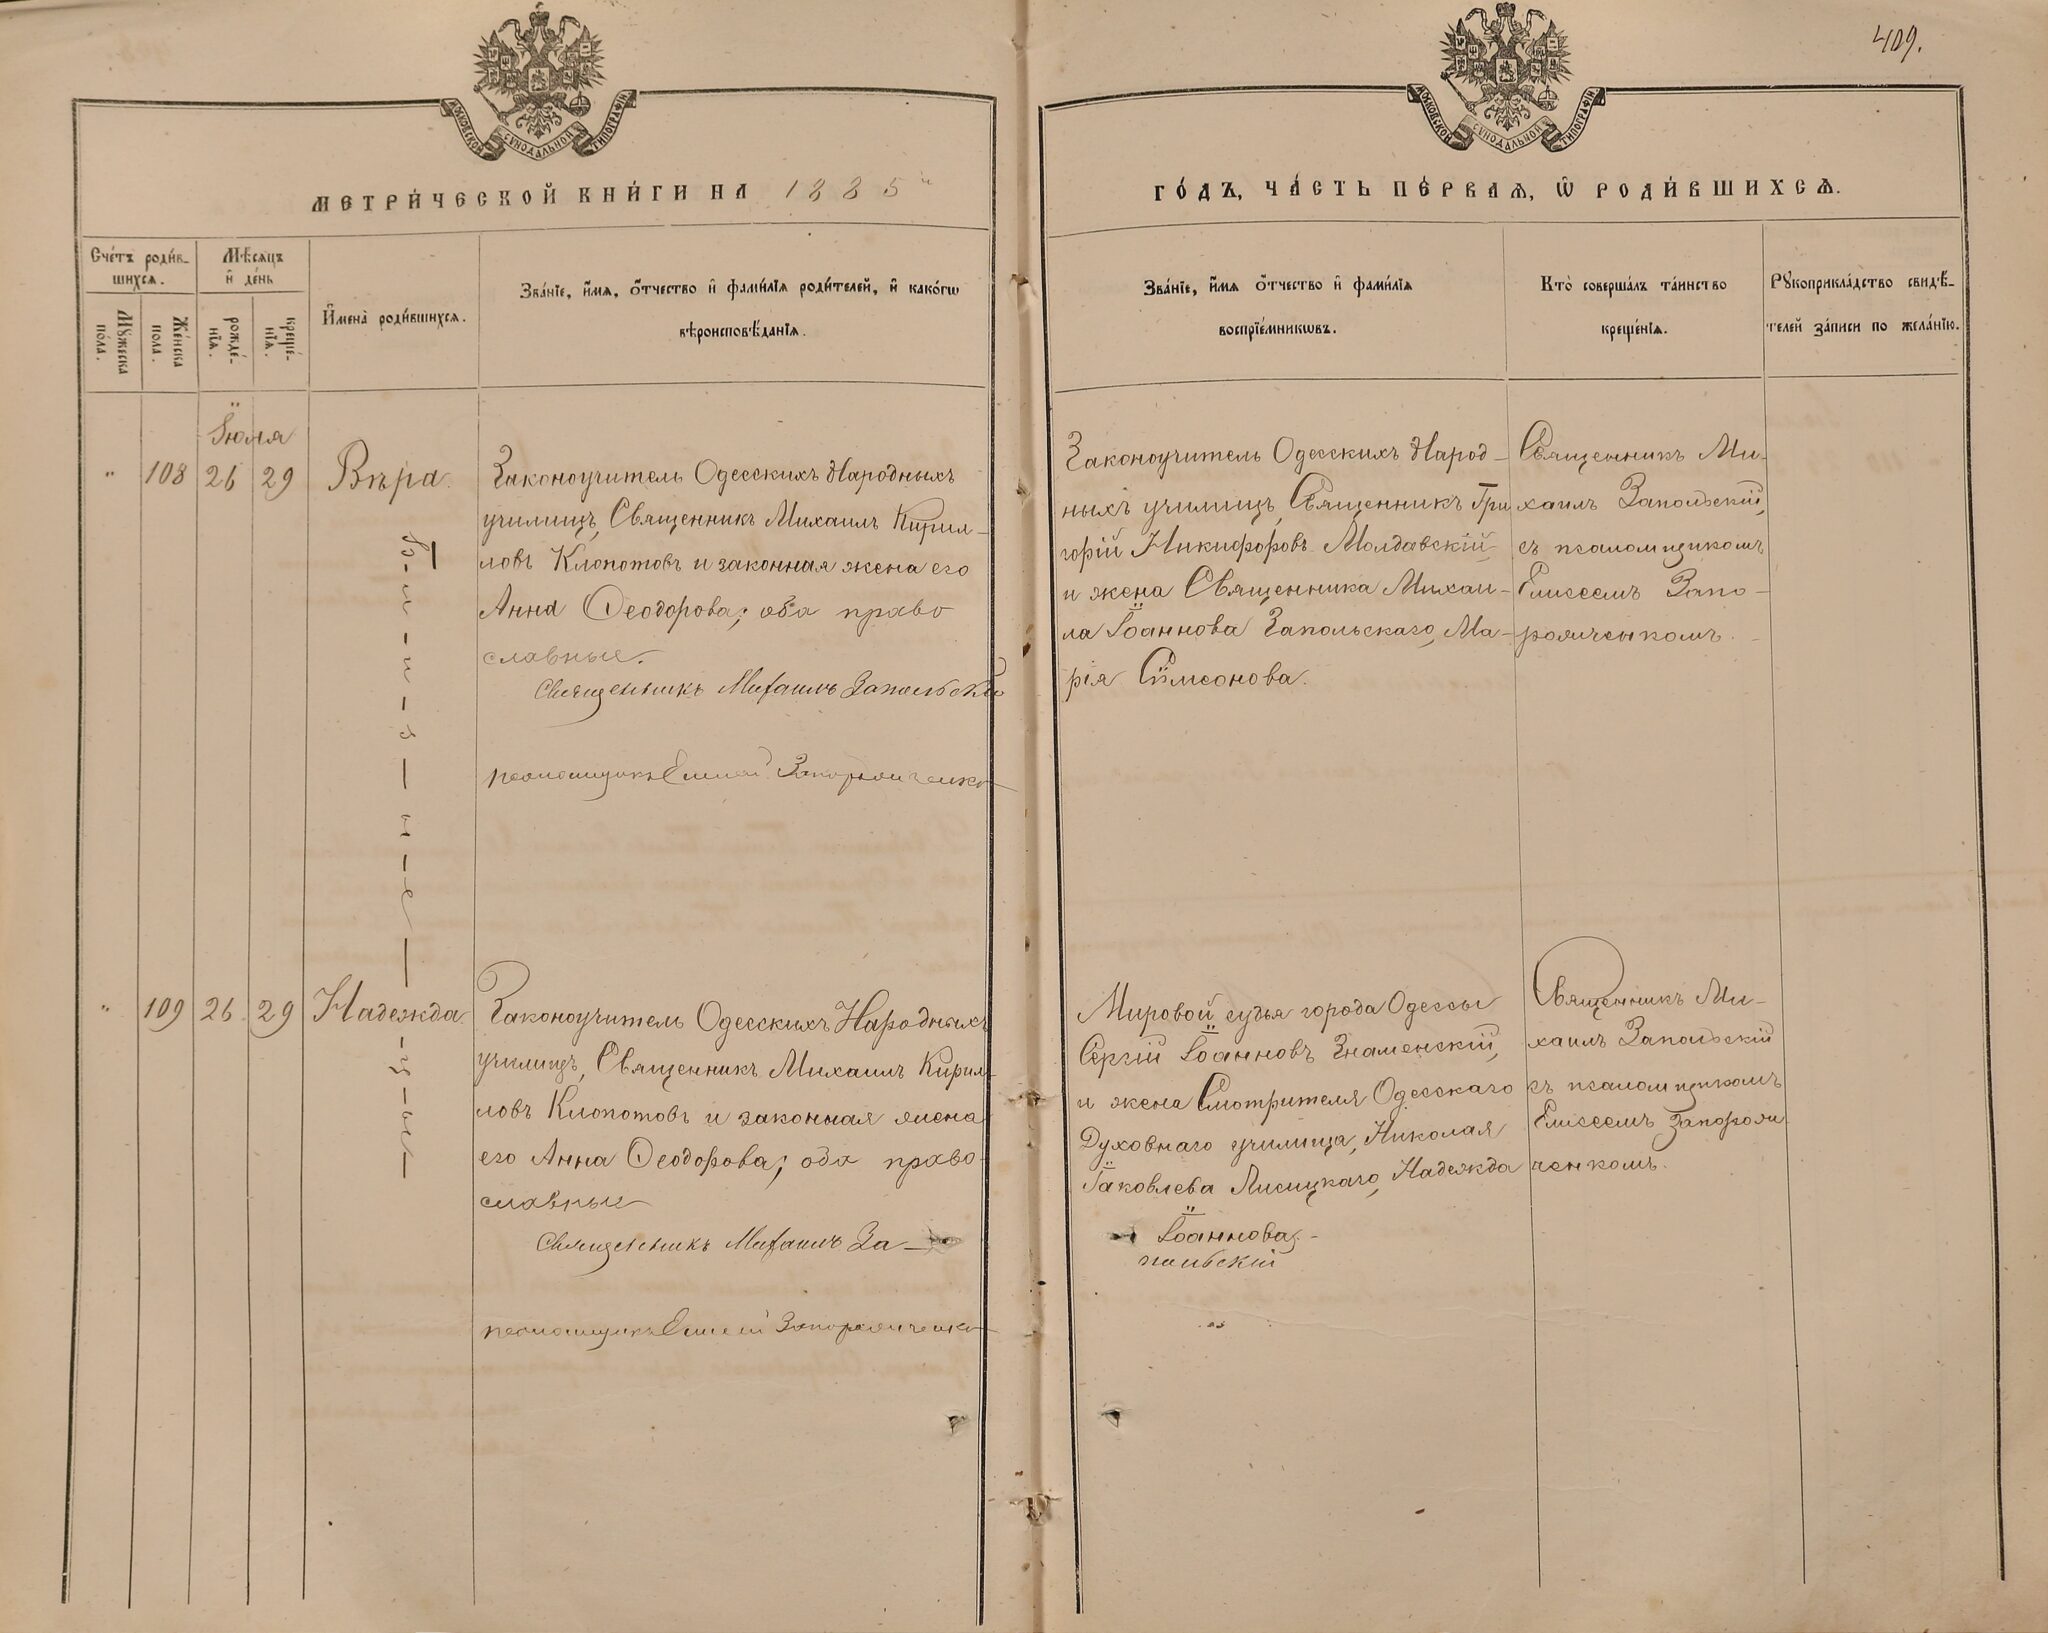 409.
МОСКОВСКОЙ СУНОДАЛЬНОЙ ТИПОГРАФІИ
МОСКОВСКОЙ СУНОДАЛЬНОЙ ТИПОГРАФІИ
МЕТРИ́ЧЕСКОЙ КНИ́ГИ НА 1885й
ГО́ДЪ, ЧА́СТЬ ПЕ́РВАЯ, Ѡ҆ РОДИ́ВШИХСѦ.
Сче́тъ роди́в-
шихсѧ.
Мѹ́жеска
по́ла.
Же́нска
по́ла.
Мѣ́сѧцъ
и҆ де́нь
рожде́-
нїѧ.
креще́-
нїѧ.
И҆мена̀ роди́вшихсѧ.
Зва́нїе, и҆́мѧ, ѻ҆́тчество и҆ фами́лїѧ роди́телей, и҆ како́гѡ
вѣроисповѣ́данїѧ.
Зва́нїе, и҆́мѧ ѻ҆́тчество и҆ фами́лїѧ
воспрїе́мникѡвъ.
Кто̀ соверша́лъ та́инство
креще́нїѧ.
Рꙋкоприкла́дство свидѣ́-
телей за́писи по жела́нїю.
Іюля
" 108 26 29 Вѣра.
Законоучитель Одесскихъ Народныхъ
училищъ, Священникъ Михаилъ Кирил-
ловъ Клопотовъ и законная жена его
Анна Ѳеодорова; оба право
славные.
Священникъ Михаилъ Запольскій
псаломщикъ Елисей Запорожченко
Законоучитель Одесскихъ Народ-
ныхъ училищъ, Священникъ Гри
горій Никифоровъ Молдавскій,
и жена Священника Михаи-
ла Іоаннова Запольскаго, Ма-
рія Сѵмеонова.
Священникъ Ми-
хаилъ Запольскій,
съ псаломщикомъ
Елисеемъ Запо-
рожченкомъ.
Б-л-и-з-н-е-ц-ы-
" 109 26 29 Надежда
Законоучитель Одесскихъ Народныхъ
училищъ, Священникъ Михаилъ Кирил-
ловъ Клопотовъ и законная жена
его Анна Ѳеодорова; оба право-
славные
Священникъ Михаилъ За-
польскій
псаломщикъ Елисей Запорожченко
Мировой судья города Одессы
Сергій Іоанновъ Знаменскій,
и жена Смотрителя Одесскаго
Духовнаго училища, Николая
Іаковлева Лисицкаго, Надежда
Іоаннова.
Священникъ Ми-
хаилъ Запольскій
съ псаломщикомъ
Елисеемъ Запорож
ченкомъ.